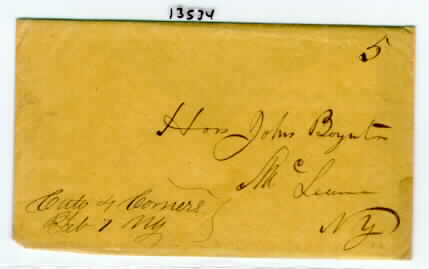 13534
5
Hon John Boynton
Mc Lean
NY
Cato 4 Corners
Feb 7 NY